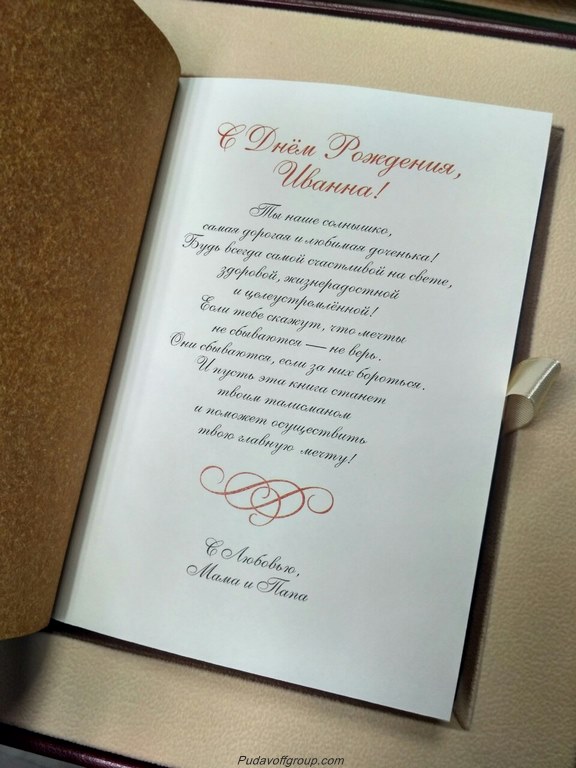 С Днём Рождения,
Иванна!
Ты наше солнышко,
самая дорогая и любимая доченька!
Будь всегда самой счастливой на свете,
здоровой, жизнерадостной
и целеустремлённой!
Если тебе скажут, что мечты
не сбываются — не верь.
Они сбываются, если за них бороться.
И пусть эта книга станет
твоим талисманом
и поможет осуществить
твою главную мечту!
С Любовью,
Мама и Папа
Pudavoffgroup.com